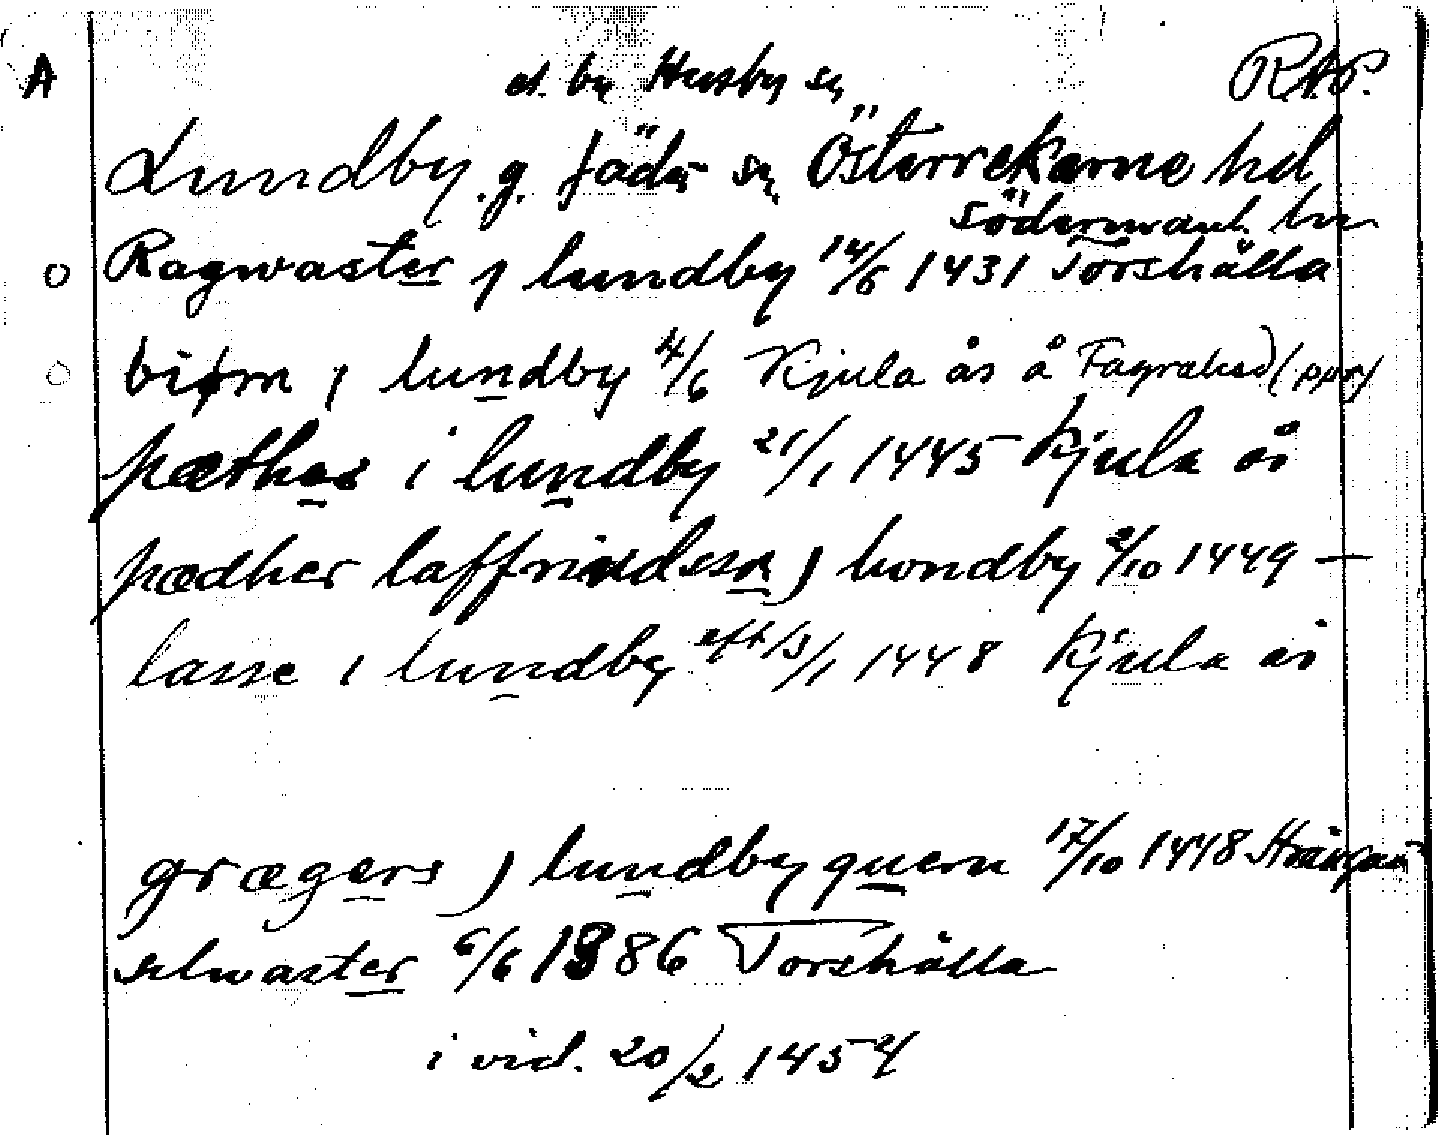 A
et. by Husby sn RAP.
Lundby g. Jäder sn Österrekarne hd
Södermanl. län
Ragwaster j lundby 14/6 1431 Torshälla
biørn j lundby 14/6 Kjula ås å Fagrahed (ppr)
pæther i lundby 21/1 1445 Kjula ås
pædher laffrindessn j londby 2/10 1449 —
lasse i lundby eft 13/1 1448 Kjula ås
grægers j lundby quern 17/10 1448
selwaster 6/6 1386 Torshälla
i vid. 20/2 1454